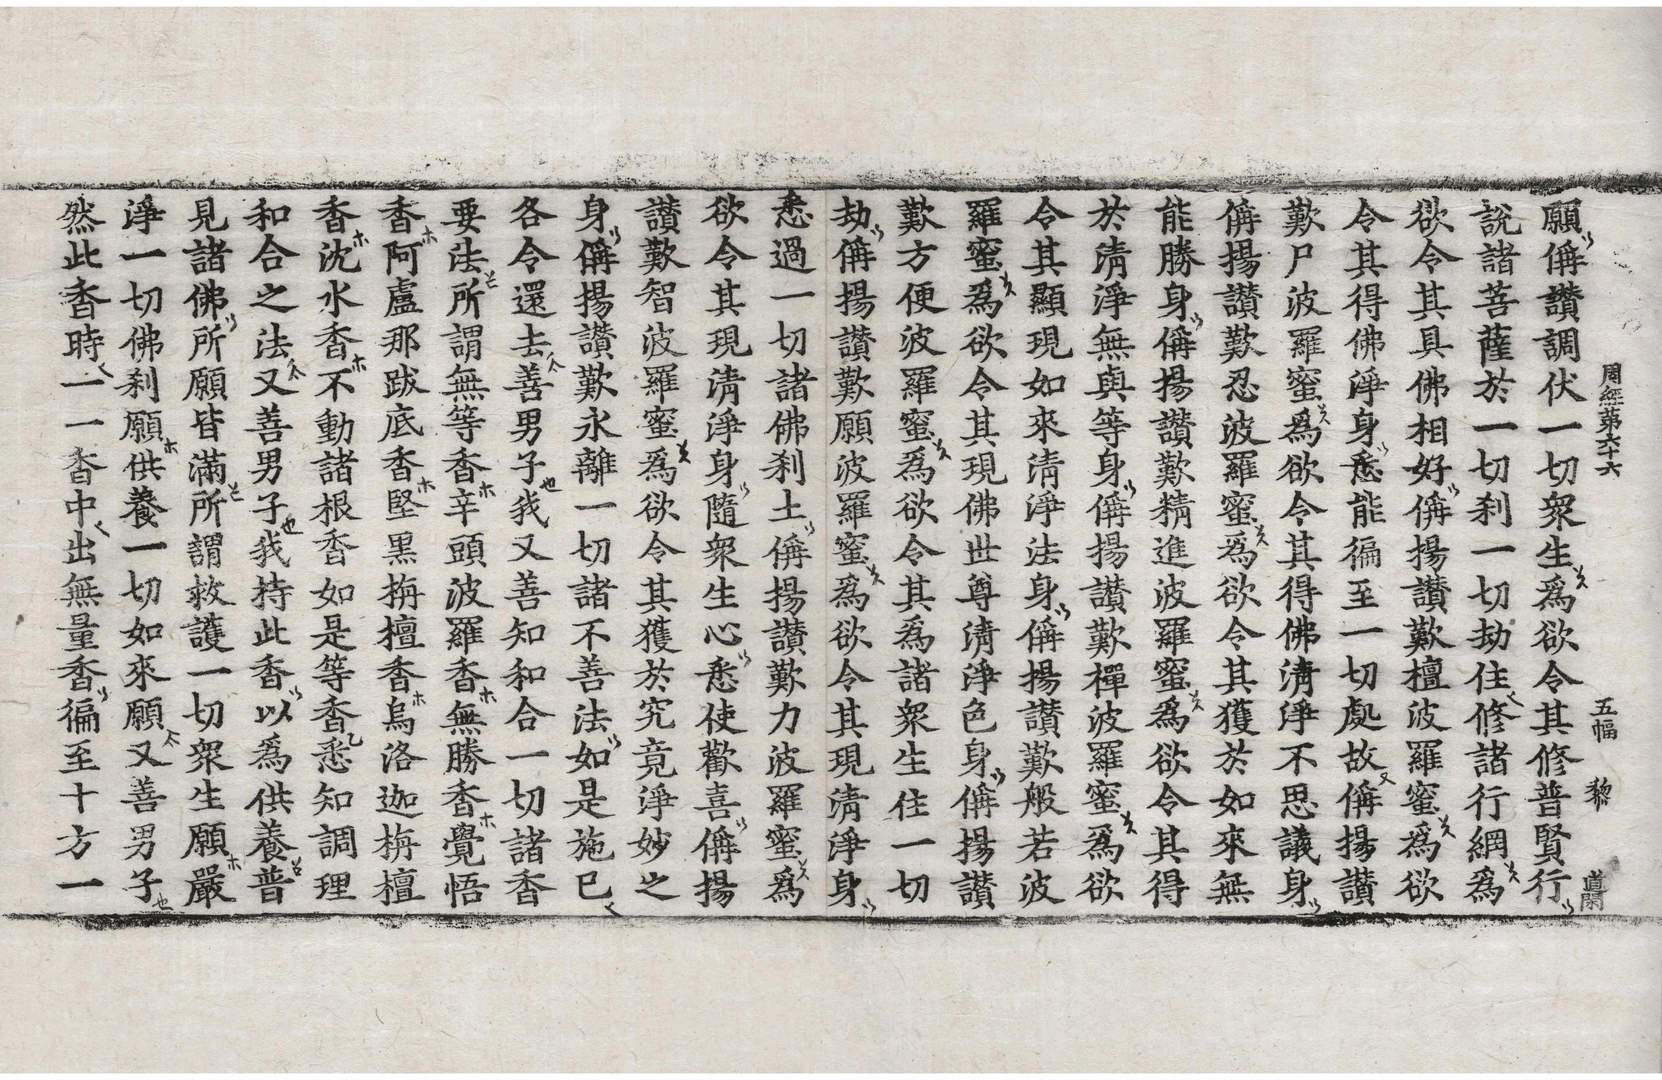 周經第六十六 五幅 黎 道閑
願偁讃調伏一切衆生爲欲令其修普賢行
說諸菩薩於一切刹一切劫住修諸行網爲
欲令其具佛相好偁揚讃歎檀波羅蜜爲欲
令其得佛淨身悉能徧至一切處故偁揚讃
歎尸波羅蜜爲欲令其得佛淸淨不思議身
偁揚讃歎忍波羅蜜爲欲令其獲於如來無
能勝身偁揚讃歎精進波羅蜜爲欲令其得
於淸淨無與等身偁揚讃歎禪波羅蜜爲欲
令其顯現如來淸淨法身偁揚讃歎般若波
羅蜜爲欲令其現佛世尊淸淨色身偁揚讃
歎方便波羅蜜爲欲令其爲諸衆生住一切
劫偁揚讃歎願波羅蜜爲欲令其現淸淨身
悉過一切諸佛刹土偁揚讃歎力波羅蜜爲
欲令其現淸淨身隨衆生心悉使歡喜偁揚
讃歎智波羅蜜爲欲令其獲於究竟淨妙之
身偁揚讃歎永離一切諸不善法如是施已
各令還去善男子我又善知和合一切諸香
要法所謂無等香辛頭波羅香無勝香覺悟
香阿盧那跋底香堅黑栴檀香烏洛迦栴檀
香沈水香不動諸根香如是等香悉知調理
和合之法又善男子我持此香以爲供養普
見諸佛所願皆滿所謂救護一切衆生願嚴
淨一切佛刹願供養一切如來願又善男子
然此香時一一香中出無量香徧至十方一